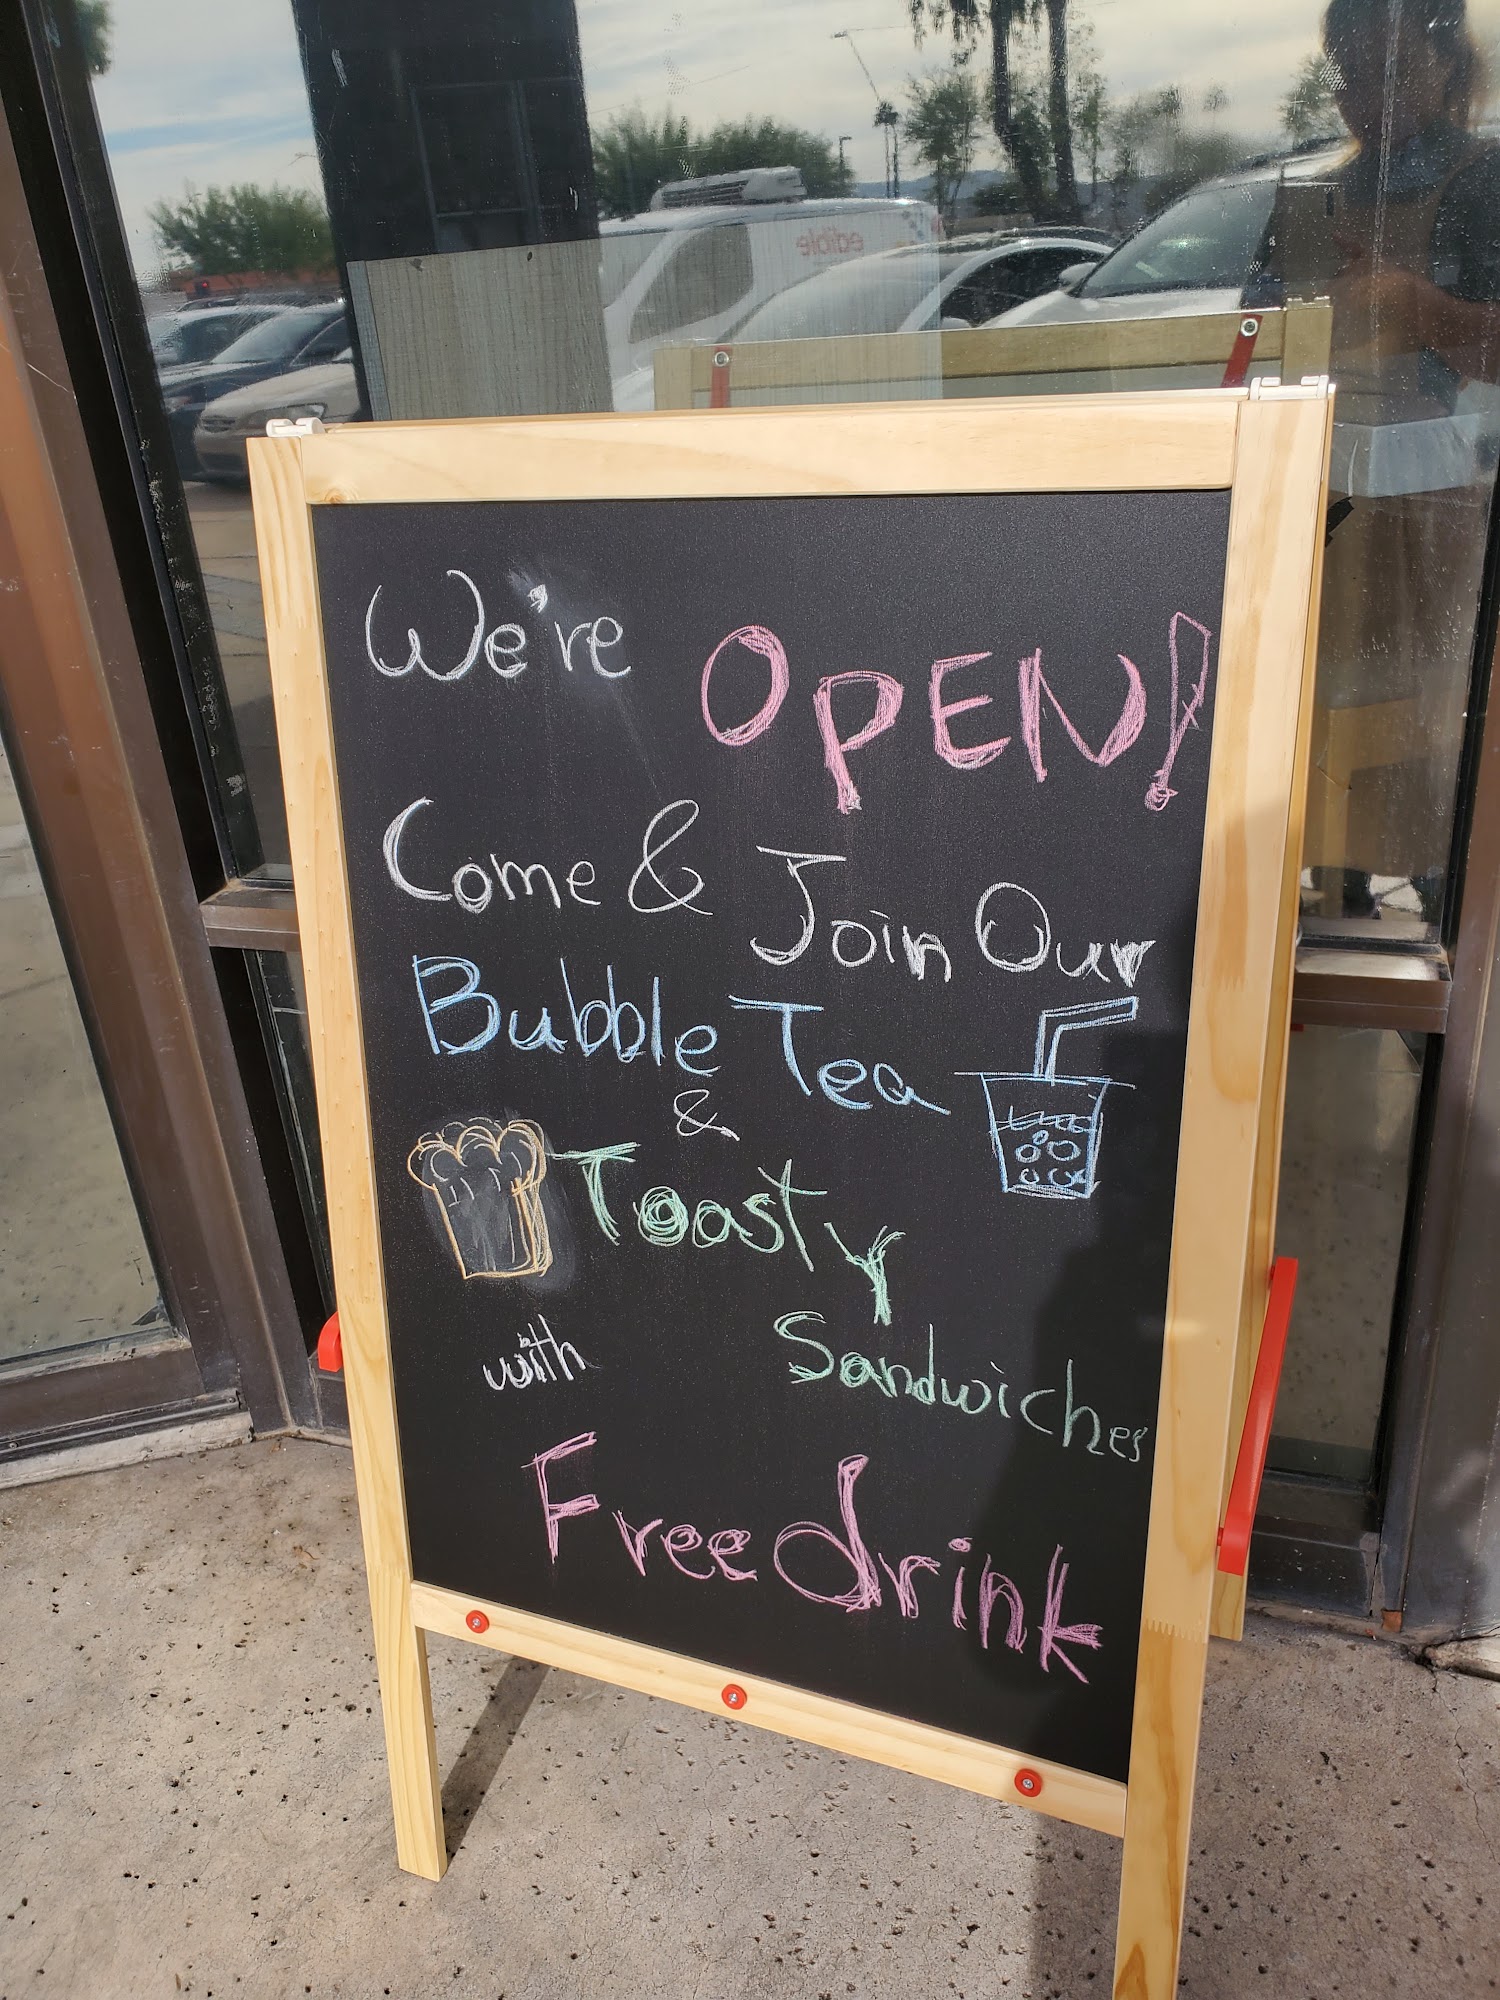 We're OPEN!
Come & Join Our
Bubble Tea
&
Toasty
Sandwiches
with
Free drink
edible